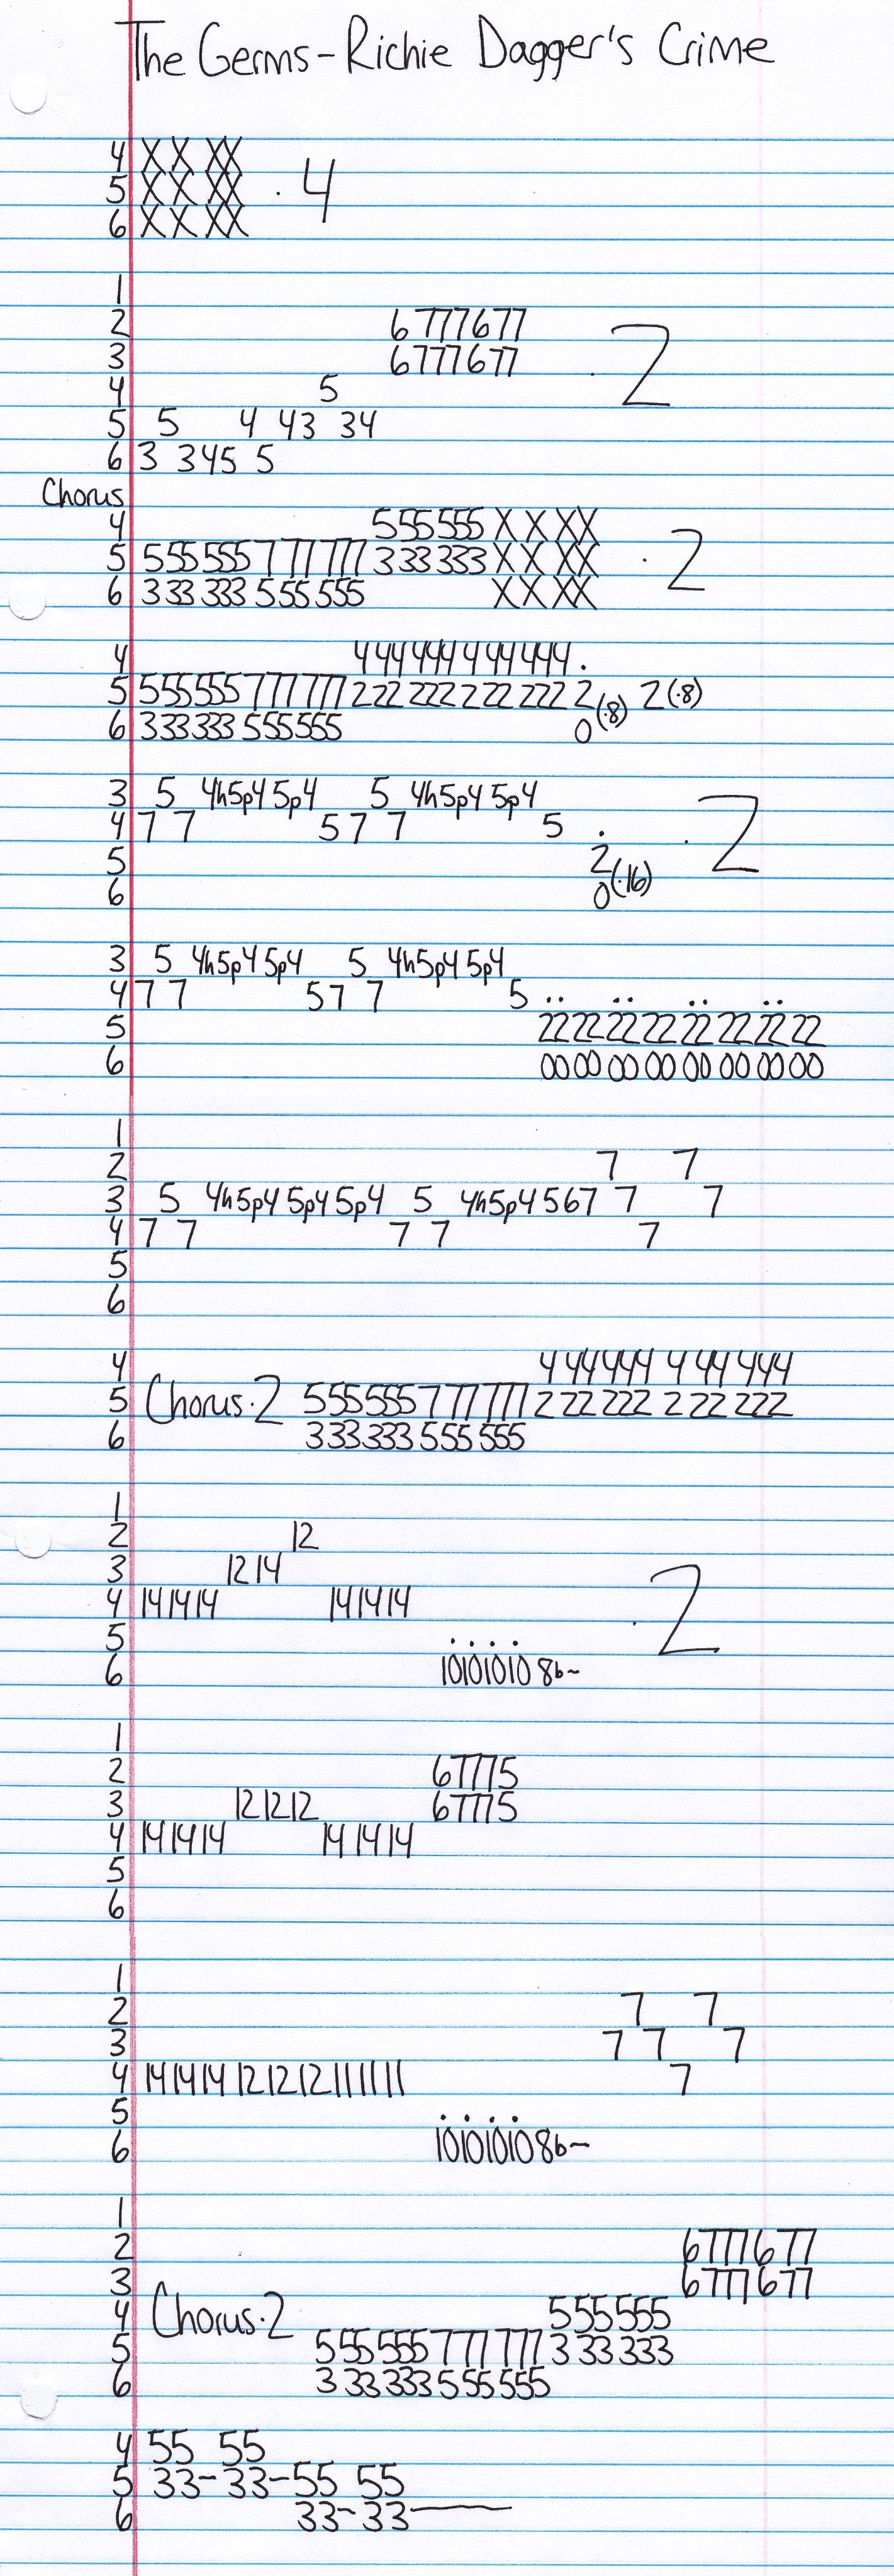 The Germs - Richie Dagger's Crime
4 X X XX
5 X X XX · 4
6 X X XX
1
2 6 777677
3 6777677 · 2
4 5
5 5 4 43 34
6 3 345 5
Chorus
4 555555 X X XX
5 555555 7 77 777 333333 X X XX · 2
6 333 333 555 555 X X XX
4 444 444 4 44 444 .
5 555555 777777 222 222 2 22 222 2 (·8) 2 (·8)
6 333333 555555 0
3 5 4h5p4 5p4 5 4h5p4 5p4
4 7 7 5 7 7 5 . · 2
5 2 (·16)
6 0
3 5 4h5p4 5p4 5 4h5p4 5p4
4 7 7 5 7 7 5 .. .. .. ..
5 22 22 22 22 22 22 22 22
6 00 00 00 00 00 00 00 00
1
2 7 7
3 5 4h5p4 5p4 5p4 5 4h5p4 567 7 7
4 7 7 7 7 7
5
6
4 4 44 444 4 44 444
5 Chorus · 2 555555 7 77 777 2 22 222 2 22 222
6 333333 555 555
1
2 12
3 12 14
4 14 14 14 14 14 14 · 2
5 . . . .
6 10 10 10 10 8b~
1
2 67775
3 12 12 12 67775
4 14 14 14 14 14 14
5
6
1
2 7 7
3 7 7 7
4 14 14 14 12 12 12 11 11 11 7
5 . . . .
6 10 10 10 10 8b~
1
2 6777677
3 6777677
4 Chorus · 2 555555
5 555 555 777 777 3 33 333
6 3 33 333 555 555
4 55 55
5 33- 33- 55 55
6 33- 33-